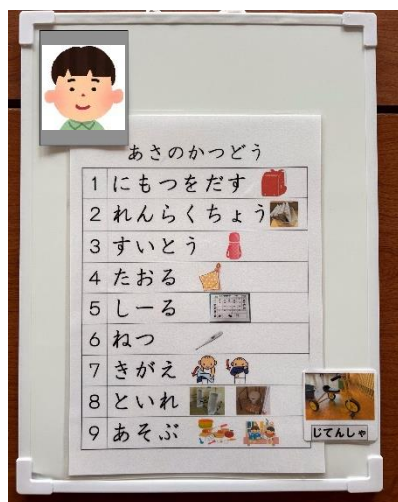 あさのかつどう
1 にもつをだす
2 れんらくちょう
3 すいとう
4 たおる
5 しーる
6 ねつ
7 きがえ
8 といれ
9 あそぶ
じてんしゃ